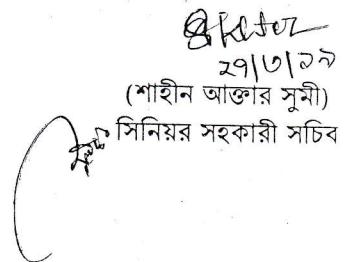 ২৭/৩/১৯
(শাহীন আক্তার সুমী)
সিনিয়র সহকারী সচিব